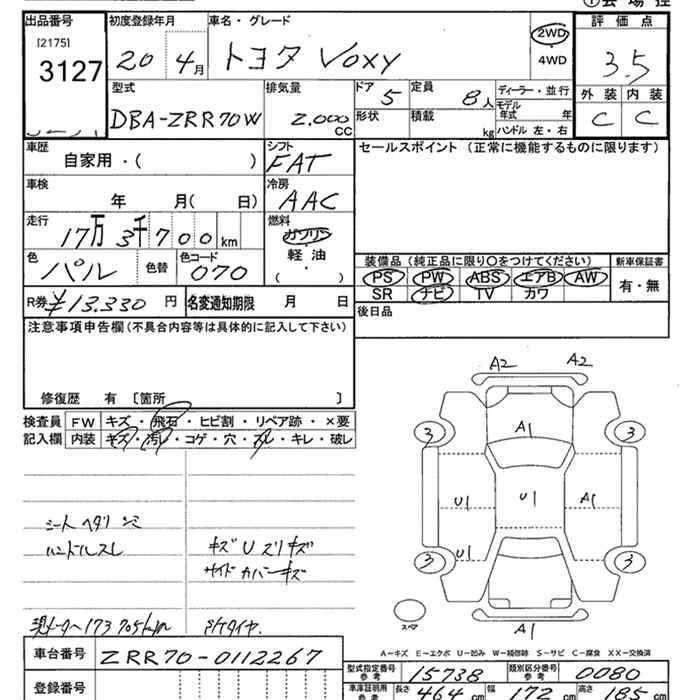 出品番号 初度登録年月 車名・グレード 2WD 評価点
[2175] 3127 20 4月 トヨタ Voxy ・ 4WD 3.5
型式 排気量 ドア 定員 ディーラー・並行 外装 内装
DBA-ZRR70W 2.000 CC 5 8人 モデル年式 年 C C
形状 積載 kg ハンドル 左・右
車歴 シフト セールスポイント (正常に機能するものに限ります)
自家用・( ) FAT
車検 冷房
年 月( 日) AAC
走行 燃料
17万3千700km ガソリン
色 色替 色コード 軽油
パル 070 ( ・ )
装備品 (純正品に限り○をつけてください) 新車保証書
PS PW ABS エアB AW 有・無
SR ナビ TV カワ
R券 ¥13.330 円 名変通知期限 月 日
後日品
注意事項申告欄(不具合内容等は具体的に記入して下さい)
修復歴 有 〔箇所 〕
検査員 FW キズ・飛石・ヒビ割・リペア跡・×要
記入欄 内装 キズ・汚レ・コゲ・穴・スレ・キレ・破レ
A2 A2
3 A1 3
U1 U1 A1
U1
3 3
スペア
A1
シートヘタリ シミ
ハンドルスレ
キズ U ズリキズ
サイドカバーキズ
現メーター173705km
A-キズ E-エクボ U-凹み W-補修跡 S-サビ C-腐食 XX-交換済
車台番号 ZRR70-0112267
型式指定番号 参考 15738 類別区分番号 参考 0080
登録番号
車庫証明用 参考 長さ 464 cm 幅 172 cm 高さ 185 cm